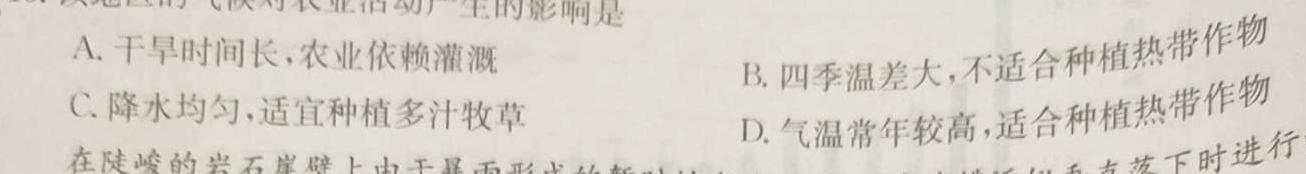 该地区的气候对农业活动产生的影响是
A. 干旱时间长,农业依赖灌溉
B. 四季温差大,不适合种植热带作物
C. 降水均匀,适宜种植多汁牧草
D. 气温常年较高,适合种植热带作物
在陡峻的岩石崖壁上由于暴雨形成的暂时 垂直落下时进行